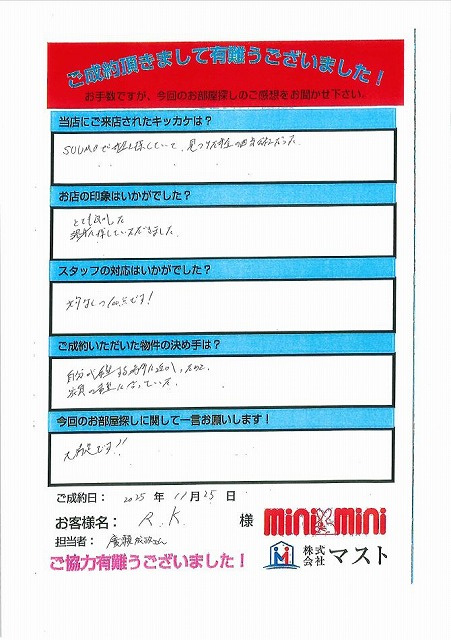 ご成約頂きまして有難うございました！
お手数ですが、今回のお部屋探しのご感想をお聞かせ下さい。
当店にご来店されたキッカケは？
SUUMOで
探していて、見つけた
お店の印象はいかがでした？
とても
探していただきました
スタッフの対応はいかがでした？
文句なしの100点です！
ご成約いただいた物件の決め手は？
自分が
今回のお部屋探しに関して一言お願いします！
大満足です!!
ご成約日： 2025 年 11 月 25 日
お客様名： R.K. 様
担当者：
ご協力有難うございました！
mini mini
株式会社 マスト